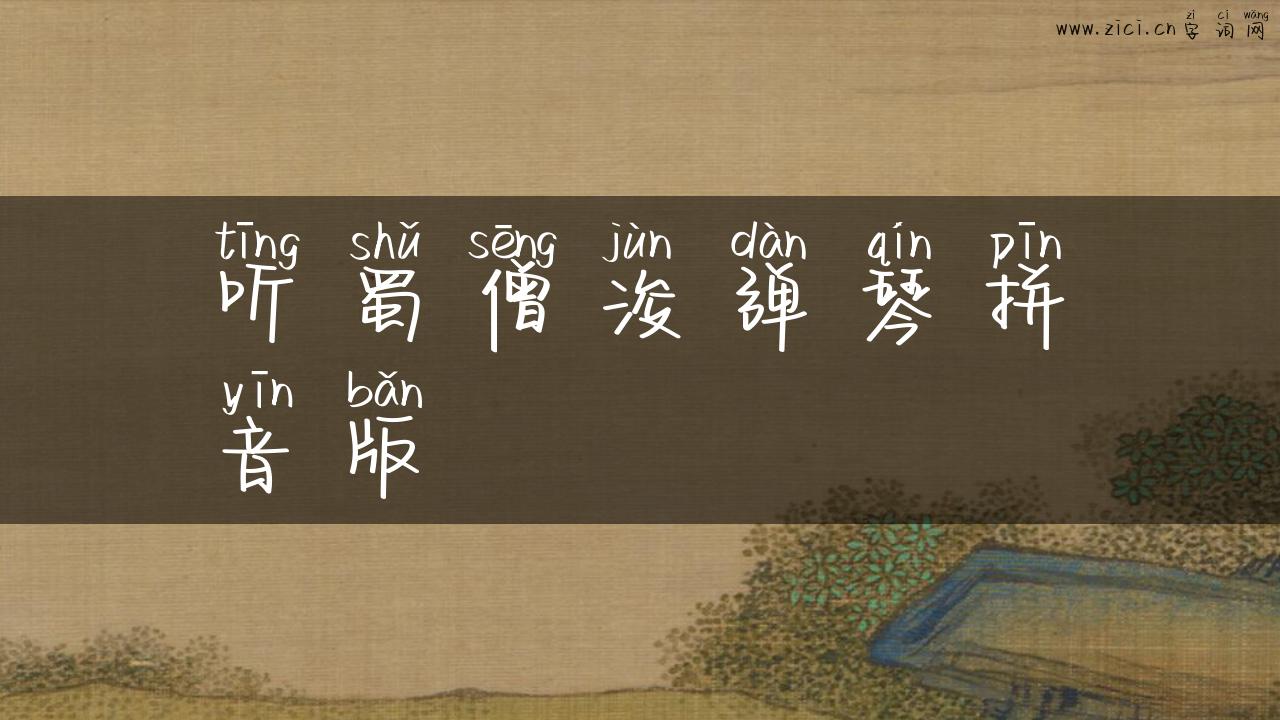 zì cí wǎng
www.zici.cn 字词网
tīng shǔ sēng jùn dàn qín pīn
听蜀僧浚弹琴拼
yīn bǎn
音版